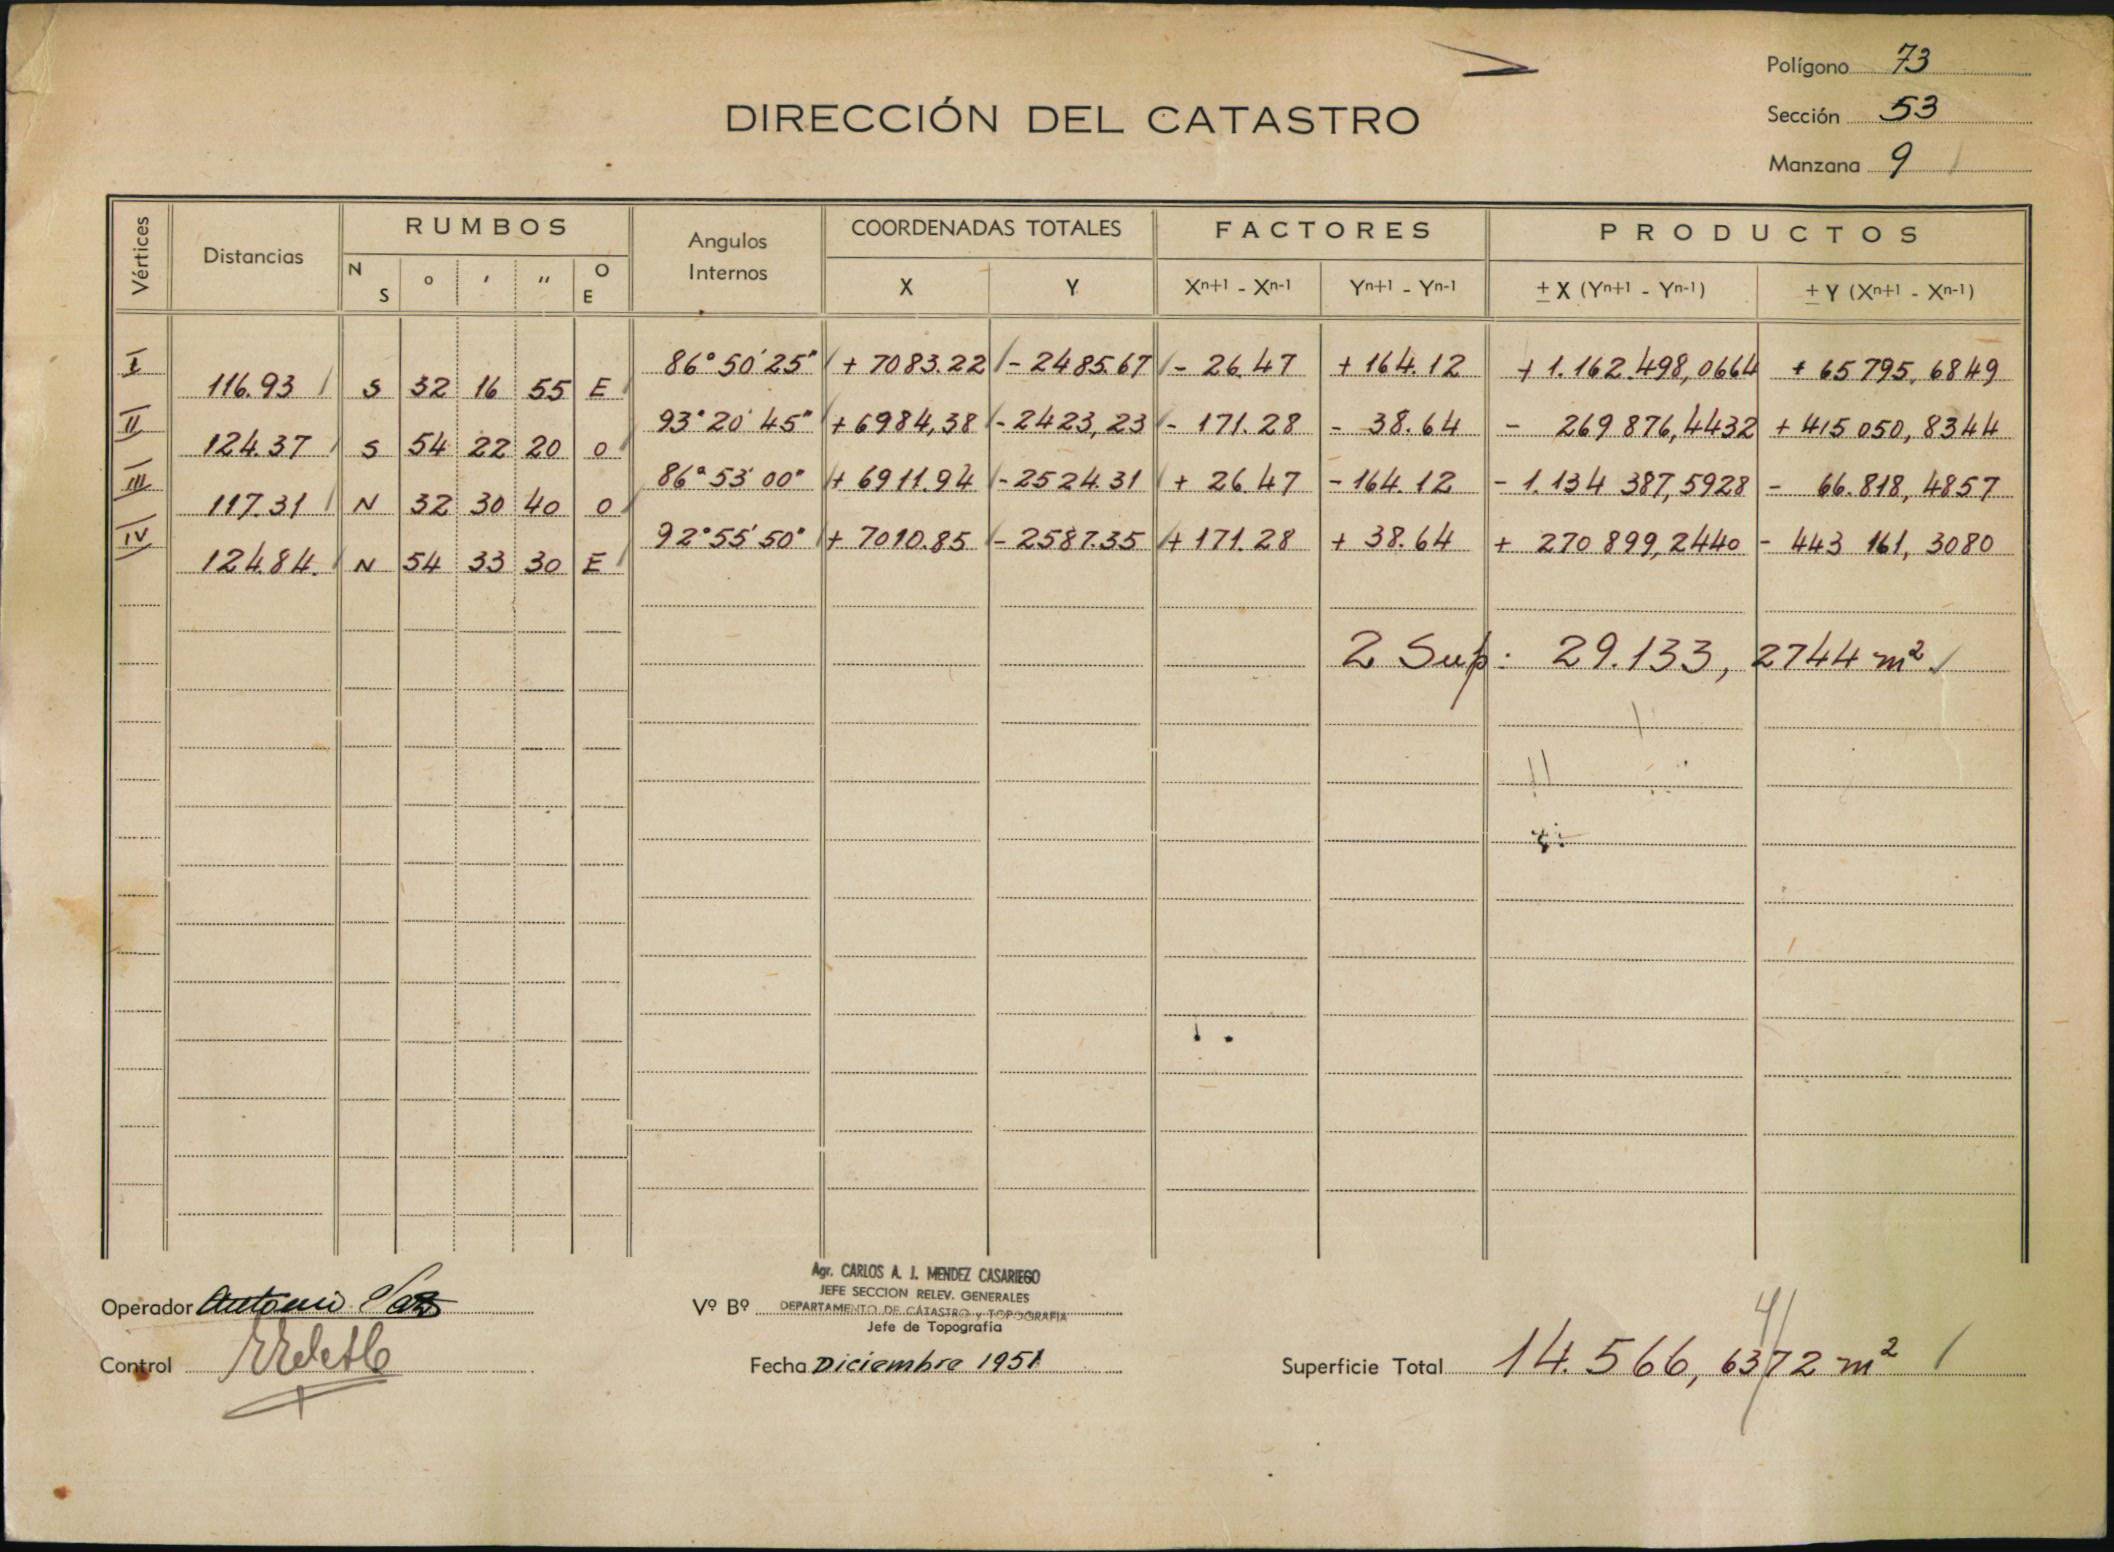 Polígono 73
DIRECCIÓN DEL CATASTRO
Sección 53
Manzana 9
Vértices Distancias RUMBOS Angulos Internos COORDENADAS TOTALES FACTORES PRODUCTOS
N S ° ' " O E X Y Xn+1 - Xn-1 Yn+1 - Yn-1 ± X (Yn+1 - Yn-1) ± Y (Xn+1 - Xn-1)
I 86° 50' 25" + 7083.22 - 2485.67 - 26.47 + 164.12 + 1.162.498,0664 + 65 795,6849
116.93 S 32 16 55 E
II 93° 20' 45" + 6984,38 - 2423,23 - 171.28 - 38.64 - 269 876,4432 + 415 050,8344
124.37 S 54 22 20 O
III 86° 53' 00" + 6911.94 - 2524.31 + 26.47 - 164.12 - 1.134 387,5928 - 66.818,4857
117.31 N 32 30 40 O
IV 92° 55' 50" + 7010.85 - 2587.35 + 171.28 + 38.64 + 270 899,2440 - 443 161,3080
124.84. N 54 33 30 E
2 Sup: 29.133,2744 m²
Agr. CARLOS A. J. MENDEZ CASARIEGO
JEFE SECCION RELEV. GENERALES
Operador Antonio Vº Bº DEPARTAMENTO DE CATASTRO y TOPOGRAFIA
Jefe de Topografía
Control Fecha Diciembre 1951 Superficie Total 14.566,6372 m²